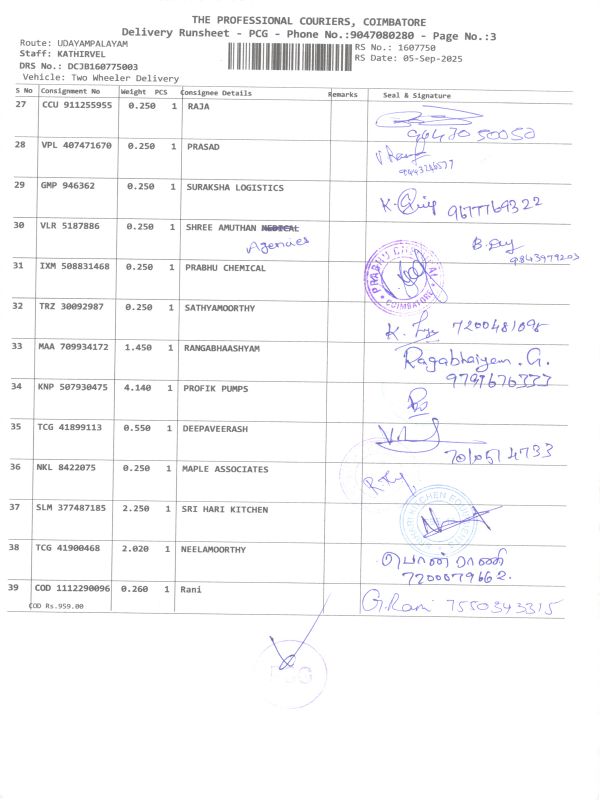 THE PROFESSIONAL COURIERS, COIMBATORE
Delivery Runsheet - PCG - Phone No.:9047080280 - Page No.:3
Route: UDAYAMPALAYAM RS No.: 1607750
Staff: KATHIRVEL RS Date: 05-Sep-2025
DRS No.: DCJB160775003
Vehicle: Two Wheeler Delivery
S No Consignment No Weight PCS Consignee Details Remarks Seal & Signature
27 CCU 911255955 0.250 1 RAJA
28 VPL 407471670 0.250 1 PRASAD
29 GMP 946362 0.250 1 SURAKSHA LOGISTICS
9677769322
30 VLR 5187886 0.250 1 SHREE AMUTHAN MEDICAL
Agencies
9843979203
31 IXM 508831468 0.250 1 PRABHU CHEMICAL
PRABHU CHEMICAL COIMBATORE
32 TRZ 30092987 0.250 1 SATHYAMOORTHY
7200481095
33 MAA 709934172 1.450 1 RANGABHAASHYAM
34 KNP 507930475 4.140 1 PROFIK PUMPS
35 TCG 41899113 0.550 1 DEEPAVEERASH
36 NKL 8422075 0.250 1 MAPLE ASSOCIATES
37 SLM 377487185 2.250 1 SRI HARI KITCHEN
38 TCG 41900468 2.020 1 NEELAMOORTHY
பொன் ராணி
7200079662.
39 COD 1112290096 0.260 1 Rani G.Rani 7550343315
COD Rs.959.00